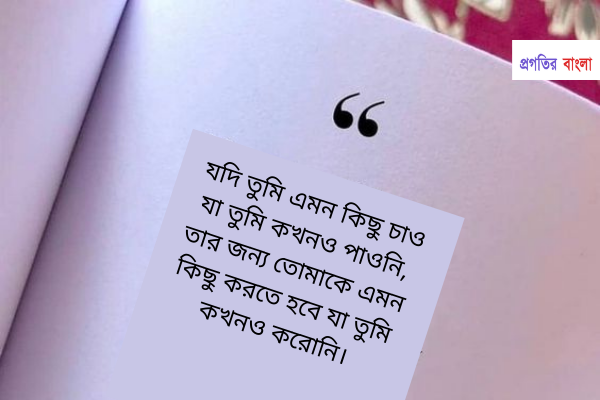 প্রগতির বাংলা
“
যদি তুমি এমন কিছু চাও
যা তুমি কখনও পাওনি,
তার জন্য তোমাকে এমন
কিছু করতে হবে যা তুমি
কখনও করোনি।